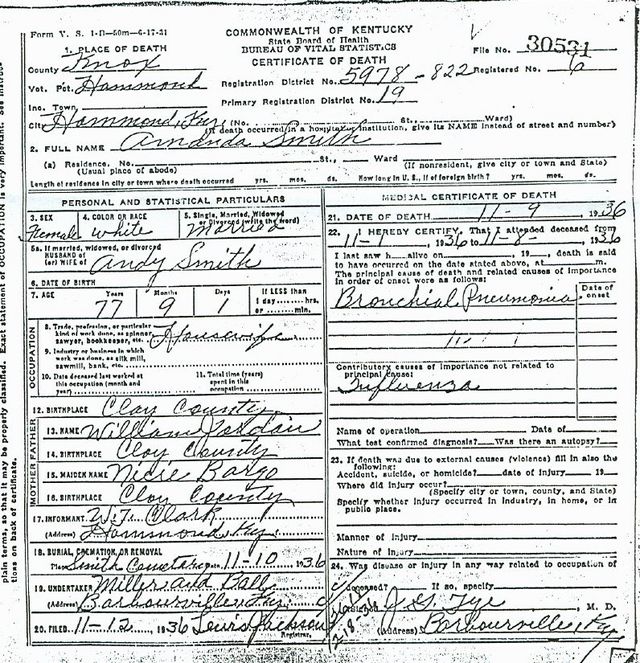 Form V. S. 1-B—50m—6-17-31
COMMONWEALTH OF KENTUCKY
State Board of Health
BUREAU OF VITAL STATISTICS
CERTIFICATE OF DEATH
File No. 30531
Registered No. 6
1. PLACE OF DEATH
County Knox
Vot. Pct. Hammond
Inc. Town
City Hammond, Ky. (No. St., Ward)
Registration District No. 5978-822
Primary Registration District No. 19
(If death occurred in a hospital or institution, give its NAME instead of street and number)
2. FULL NAME Amanda Smith
(a) Residence. No. St., Ward
(Usual place of abode) (If nonresident, give city or town and State)
Length of residence in city or town where death occurred yrs. mos. ds. How long in U. S., if of foreign birth? yrs. mos. ds.
PERSONAL AND STATISTICAL PARTICULARS
3. SEX Female
4. COLOR OR RACE White
5. Single, Married, Widowed or Divorced (write the word) Married
5a. If married, widowed, or divorced
HUSBAND of
(or) WIFE of Andy Smith
6. DATE OF BIRTH
7. AGE Years 77 Months 9 Days 1 If LESS than 1 day hrs. or min.
OCCUPATION
8. Trade, profession, or particular kind of work done, as spinner, sawyer, bookkeeper, etc. Housewife
9. Industry or business in which work was done, as silk mill, sawmill, bank, etc.
10. Date deceased last worked at this occupation (month and year)
11. Total time (years) spent in this occupation
12. BIRTHPLACE Clay County
FATHER
13. NAME William Jordan
14. BIRTHPLACE Clay County
MOTHER
15. MAIDEN NAME Bargo
16. BIRTHPLACE Clay County
17. INFORMANT W. T. Clark
(Address) Hammond Ky
18. BURIAL, CREMATION OR REMOVAL
Place Smith Date 11-10 1936
19. UNDERTAKER Miller and Ball
(Address) Barbourville, Ky
20. FILED 11-12 1936 Lewis Jackson
Registrar.
MEDICAL CERTIFICATE OF DEATH
21. DATE OF DEATH 11-9 1936
22. I HEREBY CERTIFY, That I attended deceased from
11-1 1936 to 11-8- 1936
I last saw h alive on 19 , death is said
to have occurred on the date stated above, at m.
The principal cause of death and related causes of importance
in order of onset were as follows:
Date of onset
Bronchial Pneumonia
Contributory causes of importance not related to
principal cause:
Influenza
Name of operation Date of
What test confirmed diagnosis? Was there an autopsy?
23. If death was due to external causes (violence) fill in also the
following:
Accident, suicide, or homicide? date of injury 19
Where did injury occur?
(Specify city or town, county, and State)
Specify whether injury occurred in industry, in home, or in
public place.
Manner of injury
Nature of injury
24. Was disease or injury in any way related to occupation of
deceased? If so, specify
J. G. Tye M. D.
(Address) Barbourville, Ky
plain terms, so that it may be properly classified. Exact statement of OCCUPATION is very important. See instruc-
tions on back of certificate.